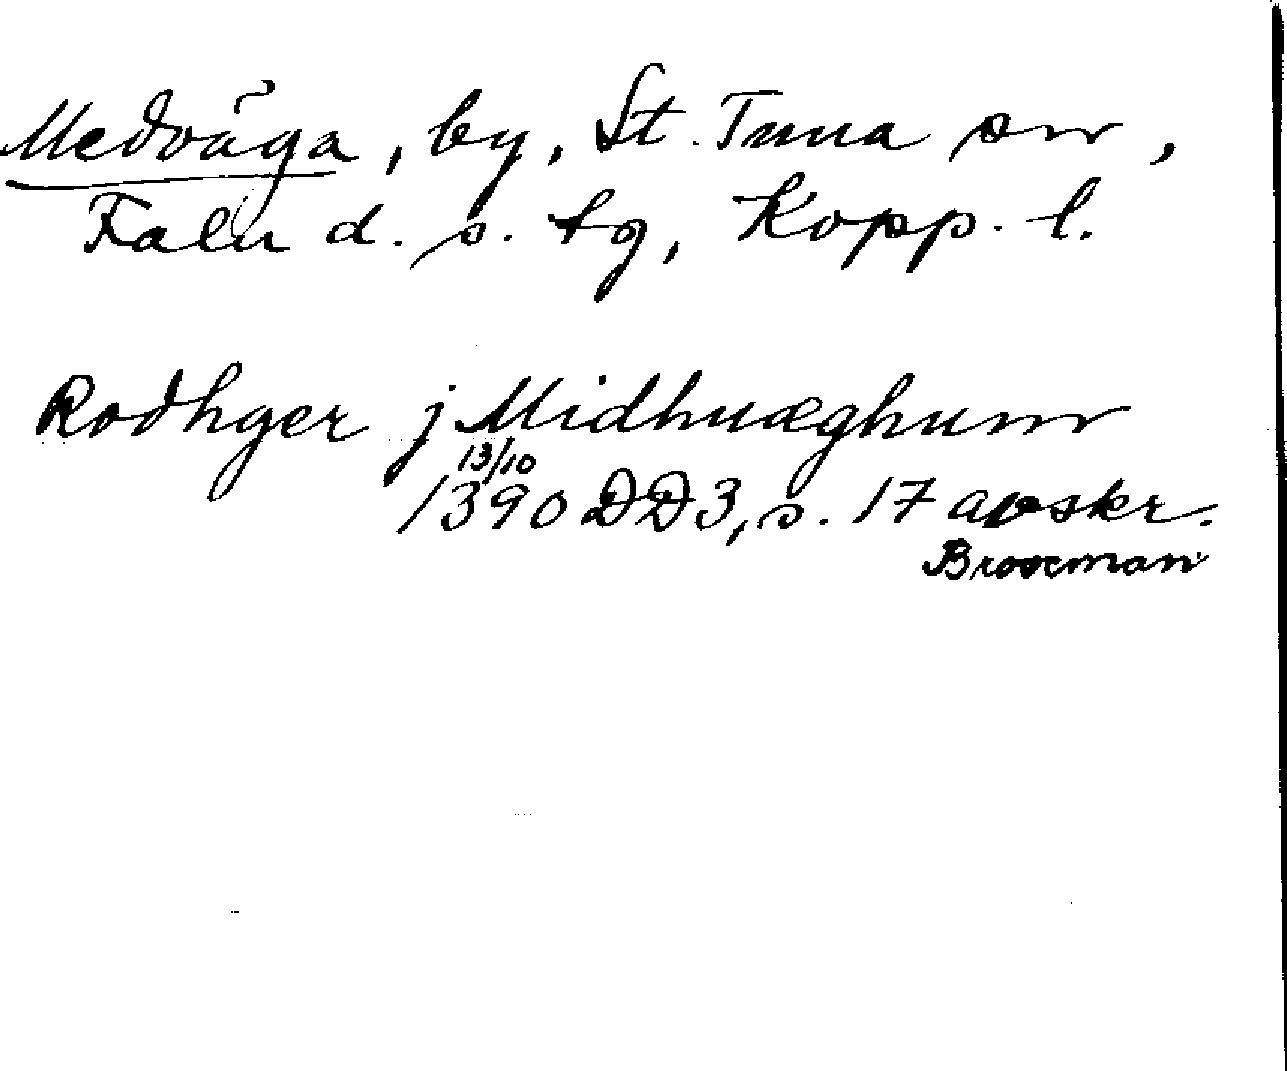 Medväga, by, St. Tuna sn,
Falu d. s. tg, Kopp. l.
Rodhger j Midhuæghum
13/10
1390 DD3, s. 17 avskr.
Brooeman